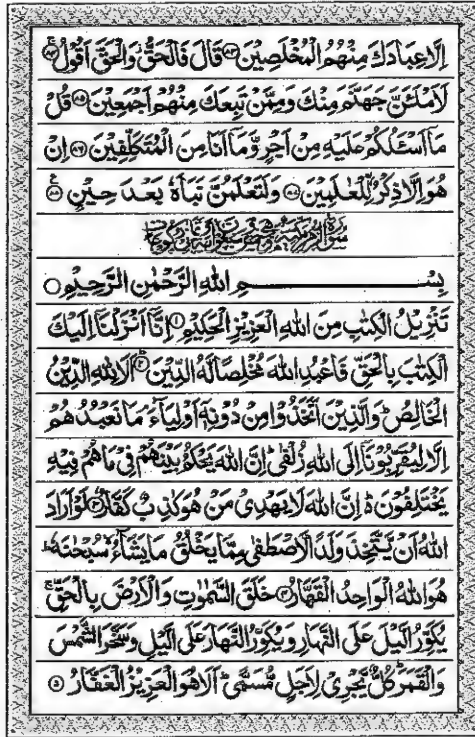 اِلَّا عِبَادَكَ مِنْهُمُ الْمُخْلَصِيْنَ ۝۸۳ قَالَ فَالْحَقُّ وَالْحَقَّ اَقُوْلُ ۝۸۴
لَاَمْلَئَنَّ جَهَنَّمَ مِنْكَ وَمِمَّنْ تَبِعَكَ مِنْهُمْ اَجْمَعِيْنَ ۝۸۵ قُلْ
مَاۤ اَسْـَٔلُكُمْ عَلَيْهِ مِنْ اَجْرٍ وَّمَاۤ اَنَا مِنَ الْمُتَكَلِّفِيْنَ ۝۸۶ اِنْ
هُوَ اِلَّا ذِكْرٌ لِّلْعٰلَمِيْنَ ۝۸۷ وَلَتَعْلَمُنَّ نَبَاَهٗ بَعْدَ حِيْنٍ ۝۸۸
سورة الزمر مكية
بِسْمِ اللّٰهِ الرَّحْمٰنِ الرَّحِيْمِ ۝
تَنْزِيْلُ الْكِتٰبِ مِنَ اللّٰهِ الْعَزِيْزِ الْحَكِيْمِ ۝۱ اِنَّاۤ اَنْزَلْنَاۤ اِلَيْكَ
الْكِتٰبَ بِالْحَقِّ فَاعْبُدِ اللّٰهَ مُخْلِصًا لَّهُ الدِّيْنَ ۝۲ اَلَا لِلّٰهِ الدِّيْنُ
الْخَالِصُ ؕ وَالَّذِيْنَ اتَّخَذُوْا مِنْ دُوْنِهٖۤ اَوْلِيَآءَ ۘ مَا نَعْبُدُهُمْ
اِلَّا لِيُقَرِّبُوْنَاۤ اِلَى اللّٰهِ زُلْفٰى ؕ اِنَّ اللّٰهَ يَحْكُمُ بَيْنَهُمْ فِيْ مَا هُمْ فِيْهِ
يَخْتَلِفُوْنَ ؕ۬ اِنَّ اللّٰهَ لَا يَهْدِيْ مَنْ هُوَ كٰذِبٌ كَفَّارٌ ۝۳ لَوْ اَرَادَ
اللّٰهُ اَنْ يَّتَّخِذَ وَلَدًا لَّاصْطَفٰى مِمَّا يَخْلُقُ مَا يَشَآءُ ۙ سُبْحٰنَهٗ ؕ
هُوَ اللّٰهُ الْوَاحِدُ الْقَهَّارُ ۝۴ خَلَقَ السَّمٰوٰتِ وَالْاَرْضَ بِالْحَقِّ ۚ
يُكَوِّرُ الَّيْلَ عَلَى النَّهَارِ وَيُكَوِّرُ النَّهَارَ عَلَى الَّيْلِ وَسَخَّرَ الشَّمْسَ
وَالْقَمَرَ ؕ كُلٌّ يَّجْرِيْ لِاَجَلٍ مُّسَمًّى ؕ اَلَا هُوَ الْعَزِيْزُ الْغَفَّارُ ۝۵